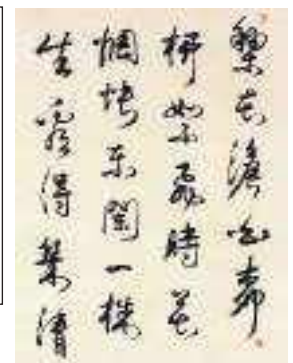 梨花淡白柳
深青柳絮飛時花
惆悵東闌一株
生看得幾清